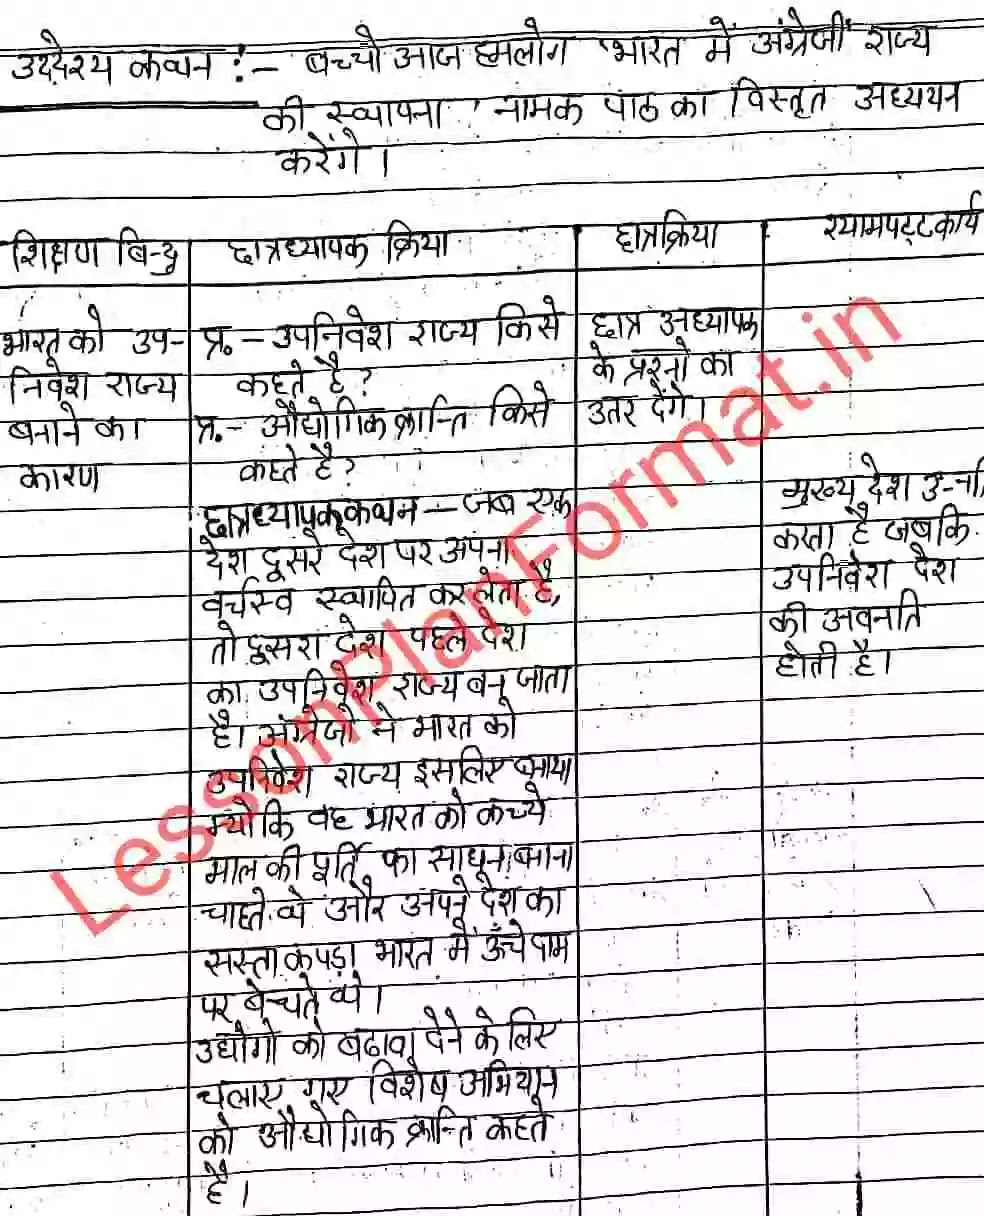 उद्देश्य कथन :- बच्चो आज हमलोग 'भारत में अंग्रेजी राज्य
की स्थापना' नामक पाठ का विस्तृत अध्ययन
करेंगे।
शिक्षण बिन्दु
छात्रध्यापक क्रिया
छात्रक्रिया
श्यामपट्टकार्य
भारत को उप-
निवेश राज्य
बनाने का
कारण
प्र. - उपनिवेश राज्य किसे
कहते है?
प्र. - औद्योगिक क्रान्ति किसे
कहते है?
छात्रध्यापक कथन - जब एक
देश दूसरे देश पर अपना
वर्चस्व स्थापित कर लेता है,
तो दूसरा देश पहले देश
का उपनिवेश राज्य बन जाता
है। अंग्रेजो ने भारत को
उपनिवेश राज्य इसलिए बनाया
क्योकि वह भारत को कच्चे
माल की पूर्ति का साधन बनाना
चाहते थे और अपने देश का
सस्ता कपड़ा भारत में ऊँचे दाम
पर बेचते थे।
उद्योगो को बढावा देने के लिए
चलाए गए विशेष अभियान
को औद्योगिक क्रान्ति कहते
है।
छात्र अध्यापक
के प्रश्नो का
उतर देंगे।
मुख्य देश
करता है जबकि
उपनिवेश देश
की अवनति
होती है।
LessonPlanFormat.in